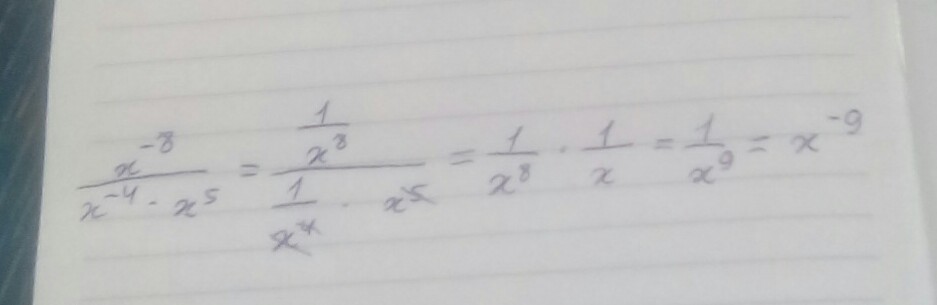 \frac{x^{-8}}{x^{-4} \cdot x^5} = \frac{\frac{1}{x^8}}{\frac{1}{x^4} \cdot x^5} = \frac{1}{x^8} \cdot \frac{1}{x} = \frac{1}{x^9} = x^{-9}